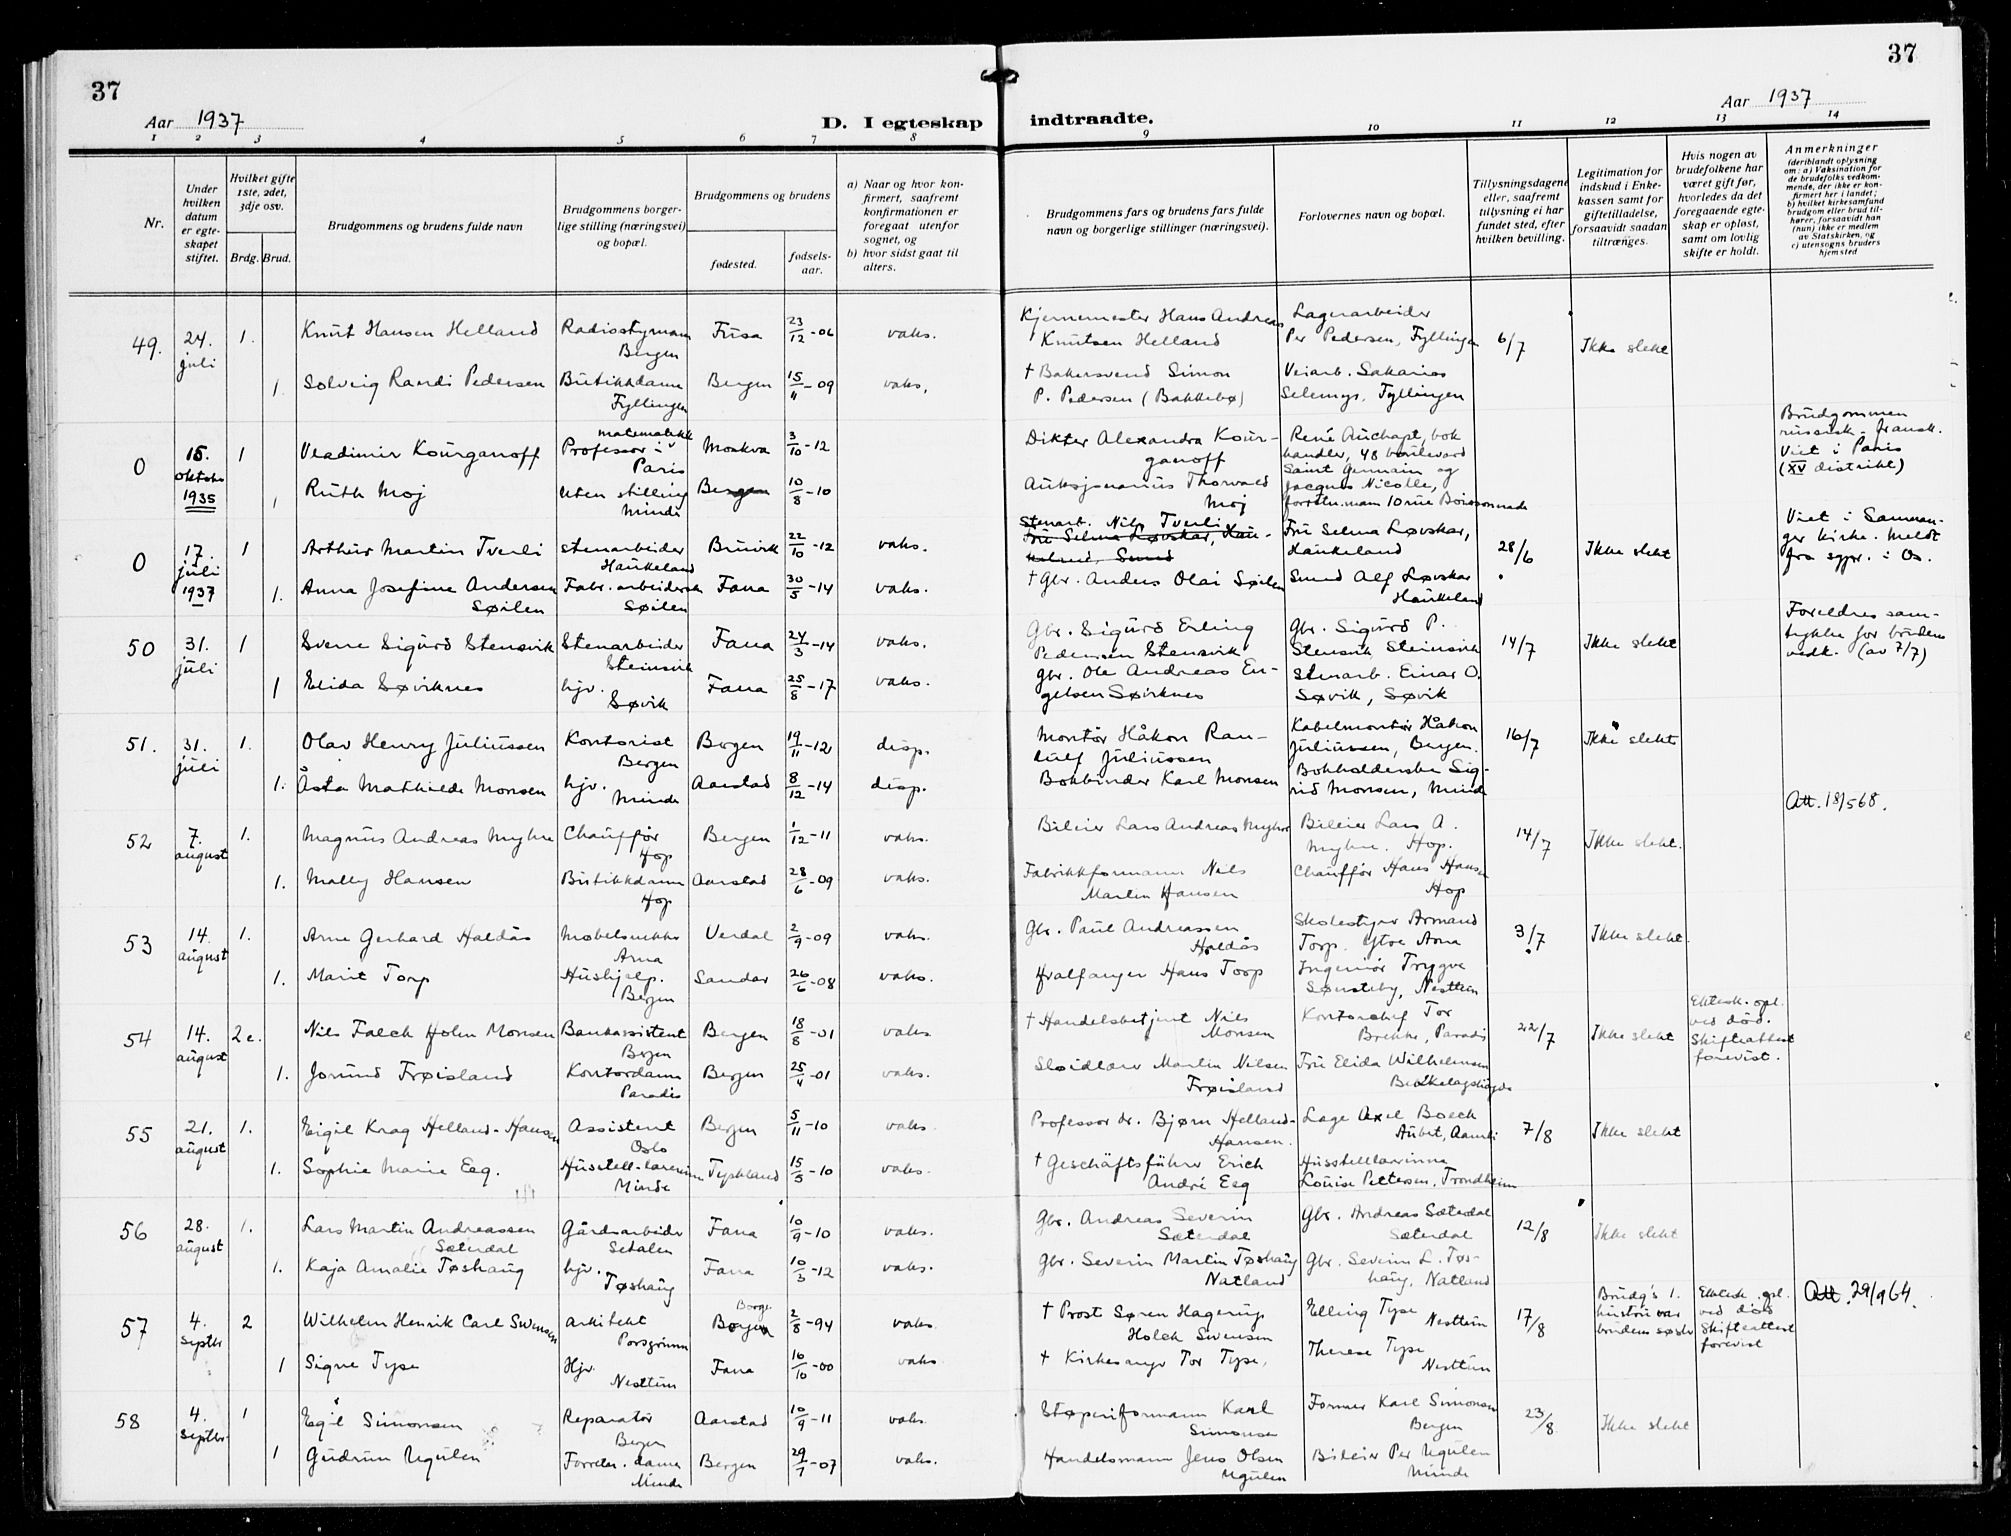 37
37
Aar 1937
D. I egteskap
indtraadte.
Aar 1937
1 2 3 4 5 6 7 8
9 10 11 12 13 14
Nr.
Under hvilken datum er egteskapet stiftet.
Hvilket gifte 1ste, 2det, 3dje osv.
Brdg. Brud.
Brudgommens og brudens fulde navn
Brudgommens borgerlige stilling (næringsvei) og bopæl.
Brudgommens og brudens
fødested.
fødselsaar.
a) Naar og hvor konfirmert, saafremt konfirmationen er foregaat utenfor sognet, og
b) hvor sidst gaat til alters.
Brudgommens fars og brudens fars fulde navn og borgerlige stillinger (næringsvei).
Forlovernes navn og bopæl.
Tillysningsdagene eller, saafremt tillysning ei har fundet sted, efter hvilken bevilling.
Legitimation for indskud i Enkekassen samt for giftetilladelse, forsaavidt saadan tiltrænges.
Hvis nogen av brudefolkene har været gift før, hvorledes da det foregaaende egteskap er opløst, samt om lovlig skifte er holdt.
Anmerkninger
(deriblandt oplysning om: a) Vaksination for de brudefolks vedkommende, der ikke er konfirmert her i landet; b) hvilket kirkesamfund brudgom eller brud tilhører, forsaavidt han (hun) ikke er medlem av Statskirken, og c) utensogns bruders hjemsted
49. 24. juli 1. Knut Hansen Helland Radiostyrmann Bergen Fusa 23/12-06 vaks. Kjernemester Hans Andreas Knutsen Helland Lagerarbeider Per Pedersen, Fyllingen 6/7 Ikke slekt
1. Solveig Randi Pedersen Butikkdame Fyllingen Bergen 15/11-09 vaks. † Bakersvend Simon P. Pedersen (Bakkebø) Veiarb. Sakarias Fyllingen
0 15. oktober 1935 1 Vladimir Kourganoff Professor i matematikk Paris Moskva 3/10-12 Dikter Alexandra Kourganoff René Auchapt, bokhandler, 48 boulevard Saint Germain og Brudgommen russisk-fransk. Viet i Paris (XV distrikt)
1 Ruth Moj Uten stilling Minde Bergen 10/8-10 Auksjonarius Thorvald Moj Jacques Nicolle, 10 rue Boissonnade
0 17. juli 1937 1 Arthur Martin Tverli stenarbeider Haukeland Bruvik 22/10-12 vaks. Stenarb. Nils Tverli Fru Selma Løvskar, Haukeland 28/6 Ikke slekt Viet i Samnanger kirke. Meldt fra sgpr. i Os.
1. Anna Josefine Andersen Søilen Fabr.arbeiderske Søilen Fana 30/5-14 vaks. † Gbr. Anders Olai Søilen Smed Alf Løvskar Haukeland
50 31. juli 1 Sverre Sigurd Stensvik Stenarbeider Steinsvik Fana 24/3-14 vaks. Gbr. Sigurd Erling Pedersen Stensvik Gbr. Sigurd P. Stensvik Steinsvik 14/7 Ikke slekt Foreldres samtykke for brudens vedk. (av 7/7)
1 Elida Søviknes hjv. Søvik Fana 25/8-17 vaks. gbr. Ole Andreas Engelsen Søviknes stenarb. Einar O. Søvik, Søvik
51. 31. juli 1. Olav Henry Juliussen Kontorist Bergen Bergen 19/11-12 disp. Montør Håkon Ranulf Juliussen Kabelmontør Håkon Juliussen, Bergen. 16/7 Ikke slekt
1. Åsta Mathilde Monsen hjv. Minde Aarstad 8/12-14 disp. Bokbinder Karl Monsen Bokholderske Sigrid Monsen, Minde
Att. 18/5 68.
52 7. august 1. Magnus Andreas Myhre Chauffør Hop Bergen 1/12-11 vaks. Bileier Lars Andreas Myhre Bileier Lars A. Myhre. Hop. 14/7 Ikke slekt.
1. Molly Hansen Butikkdame Hop Aarstad 28/6-09 vaks. Fabrikkformann Nils Martin Hansen Chauffør Hans Hansen Hop
53 14. august 1. Arne Gerhard Haldås Møbelsnekker Arna Verdal 2/9-09 vaks. Gbr. Paul Andreassen Haldås Skolestyrer Armand Torp. Ytre Arna 3/7 Ikke slekt.
1. Marit Torp Hushjelp. Bergen Sandar 26/6-08 vaks. Hvalfanger Hans Torp Ingeniør Trygve Sønsteby, Nesttun
54 14. august 2 e. Nils Falch Holm Monsen Bankassistent Bergen Bergen 18/8-01 vaks. † Handelsbetjent Nils Monsen Kontorchef Tor Brekke, Paradis 22/7 Ikke slekt Ektesk. opl. ved død. Skifteattest forevist.
1. Jorund Frøisland Kontordame Paradis Bergen 25/4-01 vaks. Sløidlærer Martin Nilsen Frøisland Fru Elida Wilhelmsen
55 21. august 1. Eigil Krag Helland-Hansen Assistent Oslo Bergen 5/11-10 vaks. Professor dr. Bjørn Helland-Hansen. Lage Axel Boeck Aubert, 7/8 Ikke slekt
1. Sophie Marie Esq. Husstell-lærerinne Minde Tyskland 15/5-10 vaks. † Geschäftsführer Erich André Esq Husstellærerinne Louise Pettersen, Trondheim
56 28. august 1. Lars Martin Andreassen Sæterdal Gårdsarbeider Setalen Fana 10/9-10 vaks. Gbr. Andreas Severin Sæterdal Gbr. Andreas Sæterdal Sæterdal 12/8 Ikke slekt
1. Kaja Amalie Tøshaug hjv. Tøshaug Fana 10/3-12 vaks. Gbr. Severin Martin Tøshaug Natland Gbr. Severin L. Tøshaug, Natland
57 4. septbr 2 Wilhelm Henrik Carl Swensen arkitekt Porsgrunn Borge 2/8-94 vaks. † Prost Søren Hagerup Holck Swensen Elling Type Nesttun 17/8 Brudg's 1. hustru var brudens søster Ektesk. opl. ved død Skifteattest forevist Att. 29/9 64.
1 Signe Type Hjv. Nesttun Fana 16/10-00 vaks † Kirkesanger Tor Type, Therese Type Nesttun
58 4. septbr. 1 Egil Simonsen Reparatør Bergen Aarstad 10/9-11 vaks. Støperiformann Karl Simonsen Former Karl Simonsen Bergen 23/8 Ikke slekt
1 Gudrun Ugulen Forretn.dame Minde Bergen 29/1-07 vaks. Handelsmann Jens Olsen Ugulen Bileier Per Ugulen Minde